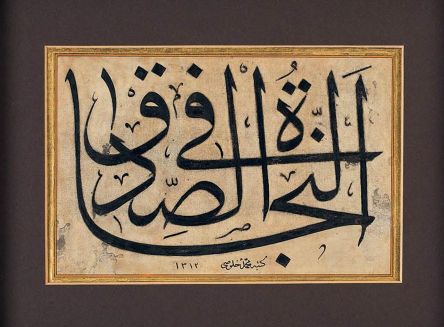 النجاةُ في الصِّدق
كتبه محمد خلوصي
١٣١٢